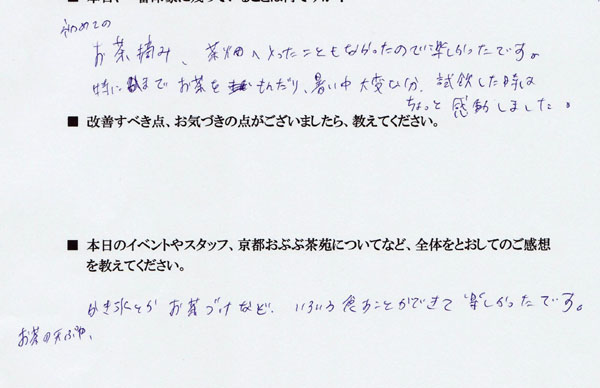 初めての
お茶摘み、茶畑へ入ったこともなかったので楽しかったです。
特に までお茶を もんだり、暑い中大変ななか、試飲した時は
ちょっと感動しました。
■ 改善すべき点、お気づきの点がございましたら、教えてください。
■ 本日のイベントやスタッフ、京都おぶぶ茶苑についてなど、全体をとおしてのご感想
を教えてください。
かき氷とか お茶づけなど、いろいろ食べることができて楽しかったです。
お茶の天ぷらや、